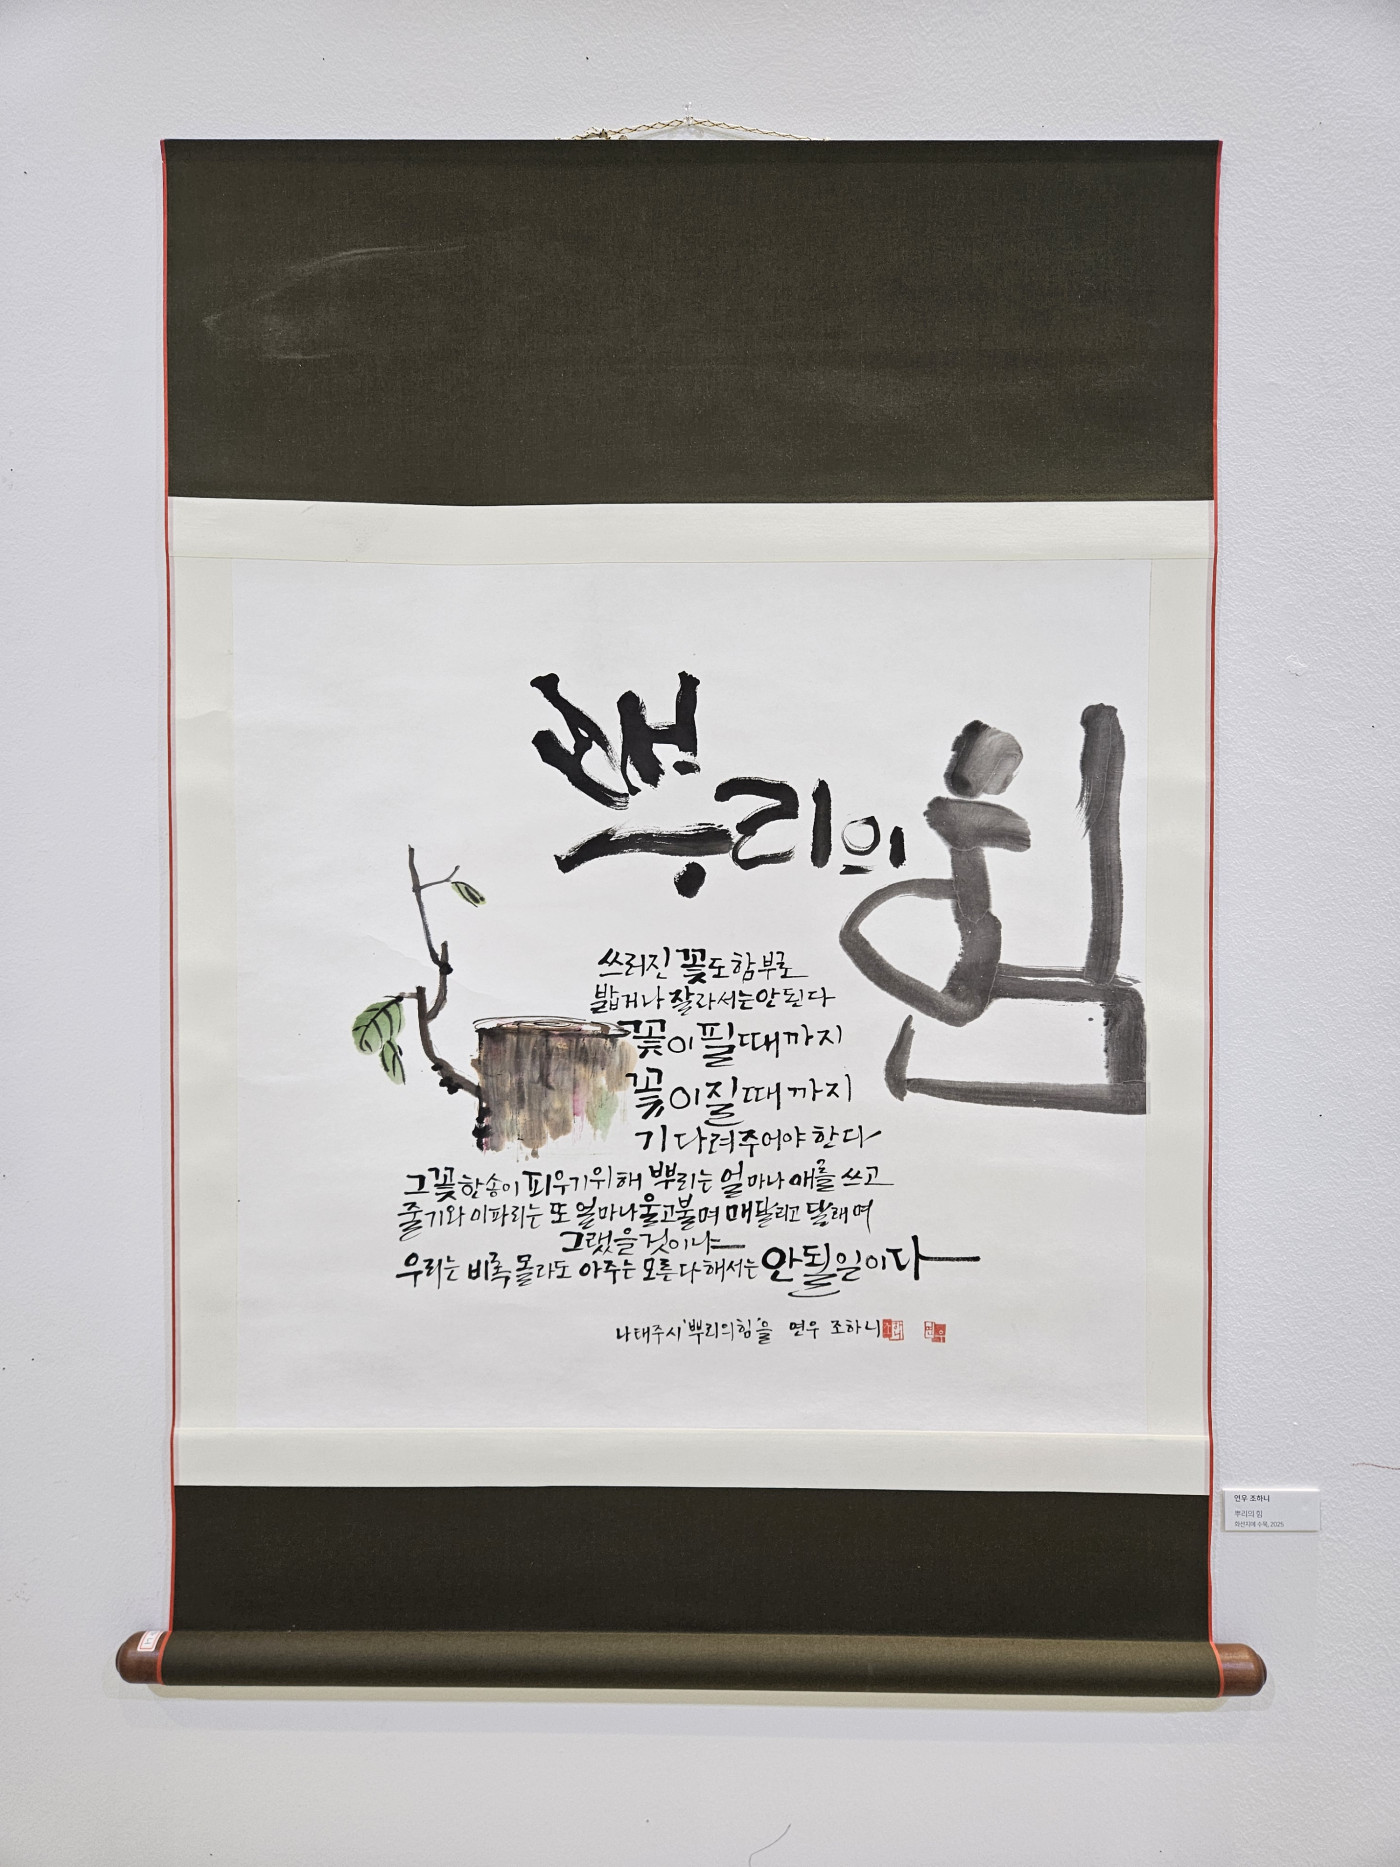 뿌리의 힘
쓰러진 꽃도 함부로
밟거나 잘라서는 안된다
꽃이 필 때까지
꽃이 질 때까지
기다려주어야 한다
그 꽃 한송이 피우기 위해 뿌리는 얼마나 애를 쓰고
줄기와 이파리는 또 얼마나 울고불며 매달리고 달래며
그랬을 것이냐
우리는 비록 몰라도 아주는 모른다 해서는 안될 일이다
나태주 시 '뿌리의 힘'을 연우 조하니
연우 조하니
뿌리의 힘
화선지에 수묵, 2025